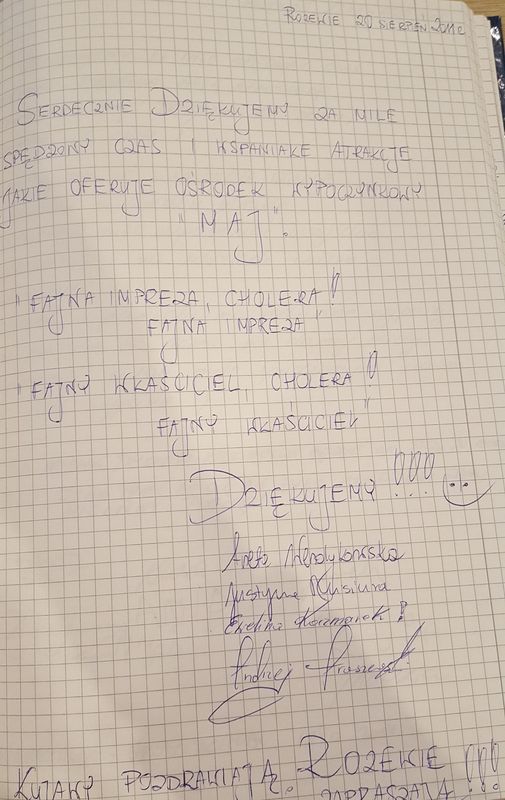 ROZEWIE 20 SIERPEŃ 2011r
SERDECZNIE DZIĘKUJEMY ZA MILE
SPĘDZONY CZAS I WSPANIAŁE ATRAKCJE
JAKIE OFERUJE OŚRODEK WYPOCZYNKOWY
"MAJ".
"FAJNA IMPREZA, CHOLERA!
FAJNA IMPREZA"
"FAJNY WŁAŚCICIEL, CHOLERA!
FAJNY WŁAŚCICIEL"
DZIĘKUJEMY!!!
Aneta
Justyna
Ewelina Kaczmarek!
Andrzej
KUJAWY POZDRAWIAJĄ. ROZEWIE !!!
ZAPRASZAJĄ